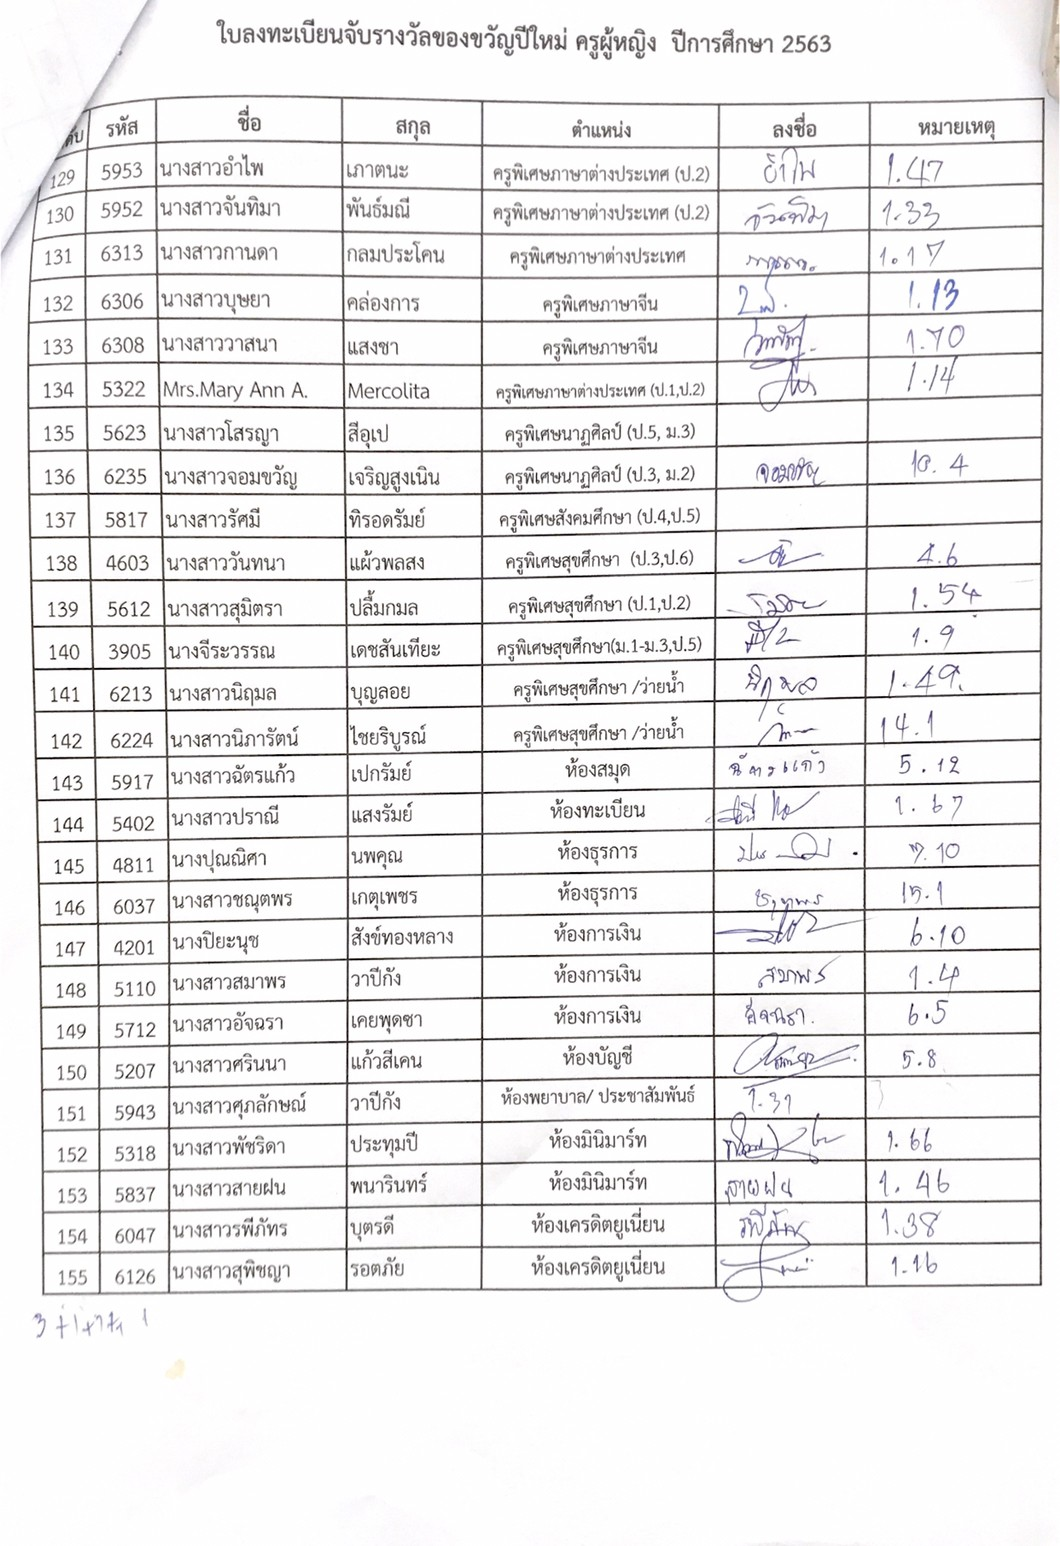 ใบลงทะเบียนจับรางวัลของขวัญปีใหม่ ครูผู้หญิง ปีการศึกษา 2563
รหัส ชื่อ สกุล ตำแหน่ง ลงชื่อ หมายเหตุ
129 5953 นางสาวอำไพ เภาตนะ ครูพิเศษภาษาต่างประเทศ (ป.2) อำไพ 1.47
130 5952 นางสาวจันทิมา พันธ์มณี ครูพิเศษภาษาต่างประเทศ (ป.2) จันทิมา 1.33
131 6313 นางสาวกานดา กลมประโคน ครูพิเศษภาษาต่างประเทศ 1.17
132 6306 นางสาวบุษยา คล่องการ ครูพิเศษภาษาจีน 1.13
133 6308 นางสาววาสนา แสงชา ครูพิเศษภาษาจีน 1.70
134 5322 Mrs.Mary Ann A. Mercolita ครูพิเศษภาษาต่างประเทศ (ป.1,ป.2) 1.14
135 5623 นางสาวโสรญา สีอุเป ครูพิเศษนาฏศิลป์ (ป.5, ม.3)
136 6235 นางสาวจอมขวัญ เจริญสูงเนิน ครูพิเศษนาฏศิลป์ (ป.3, ม.2) จอมขวัญ 10.4
137 5817 นางสาวรัศมี ทิรอดรัมย์ ครูพิเศษสังคมศึกษา (ป.4,ป.5)
138 4603 นางสาววันทนา แผ้วพลสง ครูพิเศษสุขศึกษา (ป.3,ป.6) 4.6
139 5612 นางสาวสุมิตรา ปลื้มกมล ครูพิเศษสุขศึกษา (ป.1,ป.2) 1.54
140 3905 นางจีระวรรณ เดชสันเทียะ ครูพิเศษสุขศึกษา(ม.1-ม.3,ป.5) 1.9
141 6213 นางสาวนิฤมล บุญลอย ครูพิเศษสุขศึกษา /ว่ายน้ำ นิฤมล 1.49
142 6224 นางสาวนิภารัตน์ ไชยริบูรณ์ ครูพิเศษสุขศึกษา /ว่ายน้ำ 14.1
143 5917 นางสาวฉัตรแก้ว เปกรัมย์ ห้องสมุด ฉัตรแก้ว 5.12
144 5402 นางสาวปราณี แสงรัมย์ ห้องทะเบียน 1.67
145 4811 นางปุณณิศา นพคุณ ห้องธุรการ 7.10
146 6037 นางสาวชณุตพร เกตุเพชร ห้องธุรการ 15.1
147 4201 นางปิยะนุช สังข์ทองหลาง ห้องการเงิน 6.10
148 5110 นางสาวสมาพร วาปีกัง ห้องการเงิน สมาพร 1.4
149 5712 นางสาวอัจฉรา เคยพุดซา ห้องการเงิน อัจฉรา 6.5
150 5207 นางสาวศรินนา แก้วสีเคน ห้องบัญชี 5.8
151 5943 นางสาวศุภลักษณ์ วาปีกัง ห้องพยาบาล/ ประชาสัมพันธ์ 1.31
152 5318 นางสาวพัชริดา ประทุมปี ห้องมินิมาร์ท 1.66
153 5837 นางสาวสายฝน พนารินทร์ ห้องมินิมาร์ท สายฝน 1.46
154 6047 นางสาวรพีภัทร บุตรดี ห้องเครดิตยูเนี่ยน รพีภัทร 1.38
155 6126 นางสาวสุพิชญา รอตภัย ห้องเครดิตยูเนี่ยน 1.16